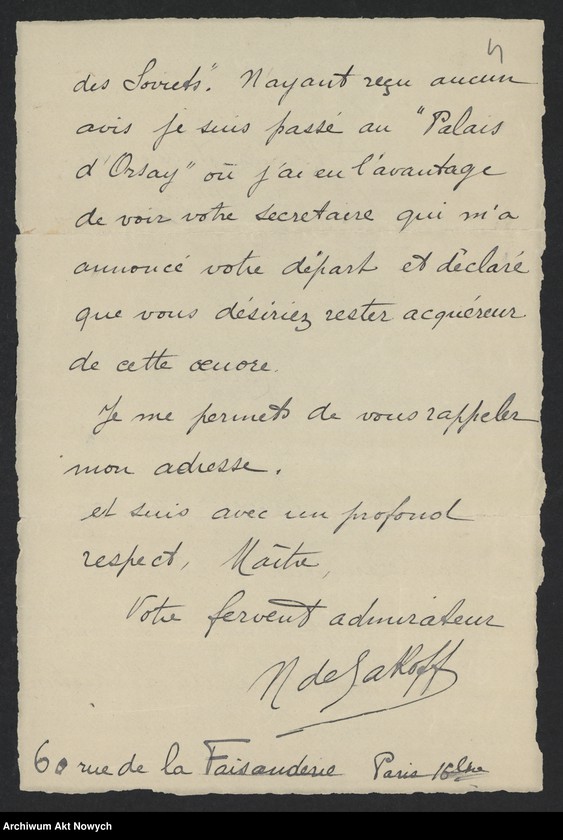 4
des Soviets". N'ayant reçu aucun
avis je suis passé au "Palais
d'Orsay" où j'ai eu l'avantage
de voir votre secretaire qui m'a
annoncé votre départ et déclaré
que vous désiriez rester acquéreur
de cette œuvre.
Je me permets de vous rappeler
mon adresse.
et suis avec un profond
respect, Maître,
Votre fervent admirateur
N de
60 rue de la Faisanderie Paris 16ème
Archiwum Akt Nowych